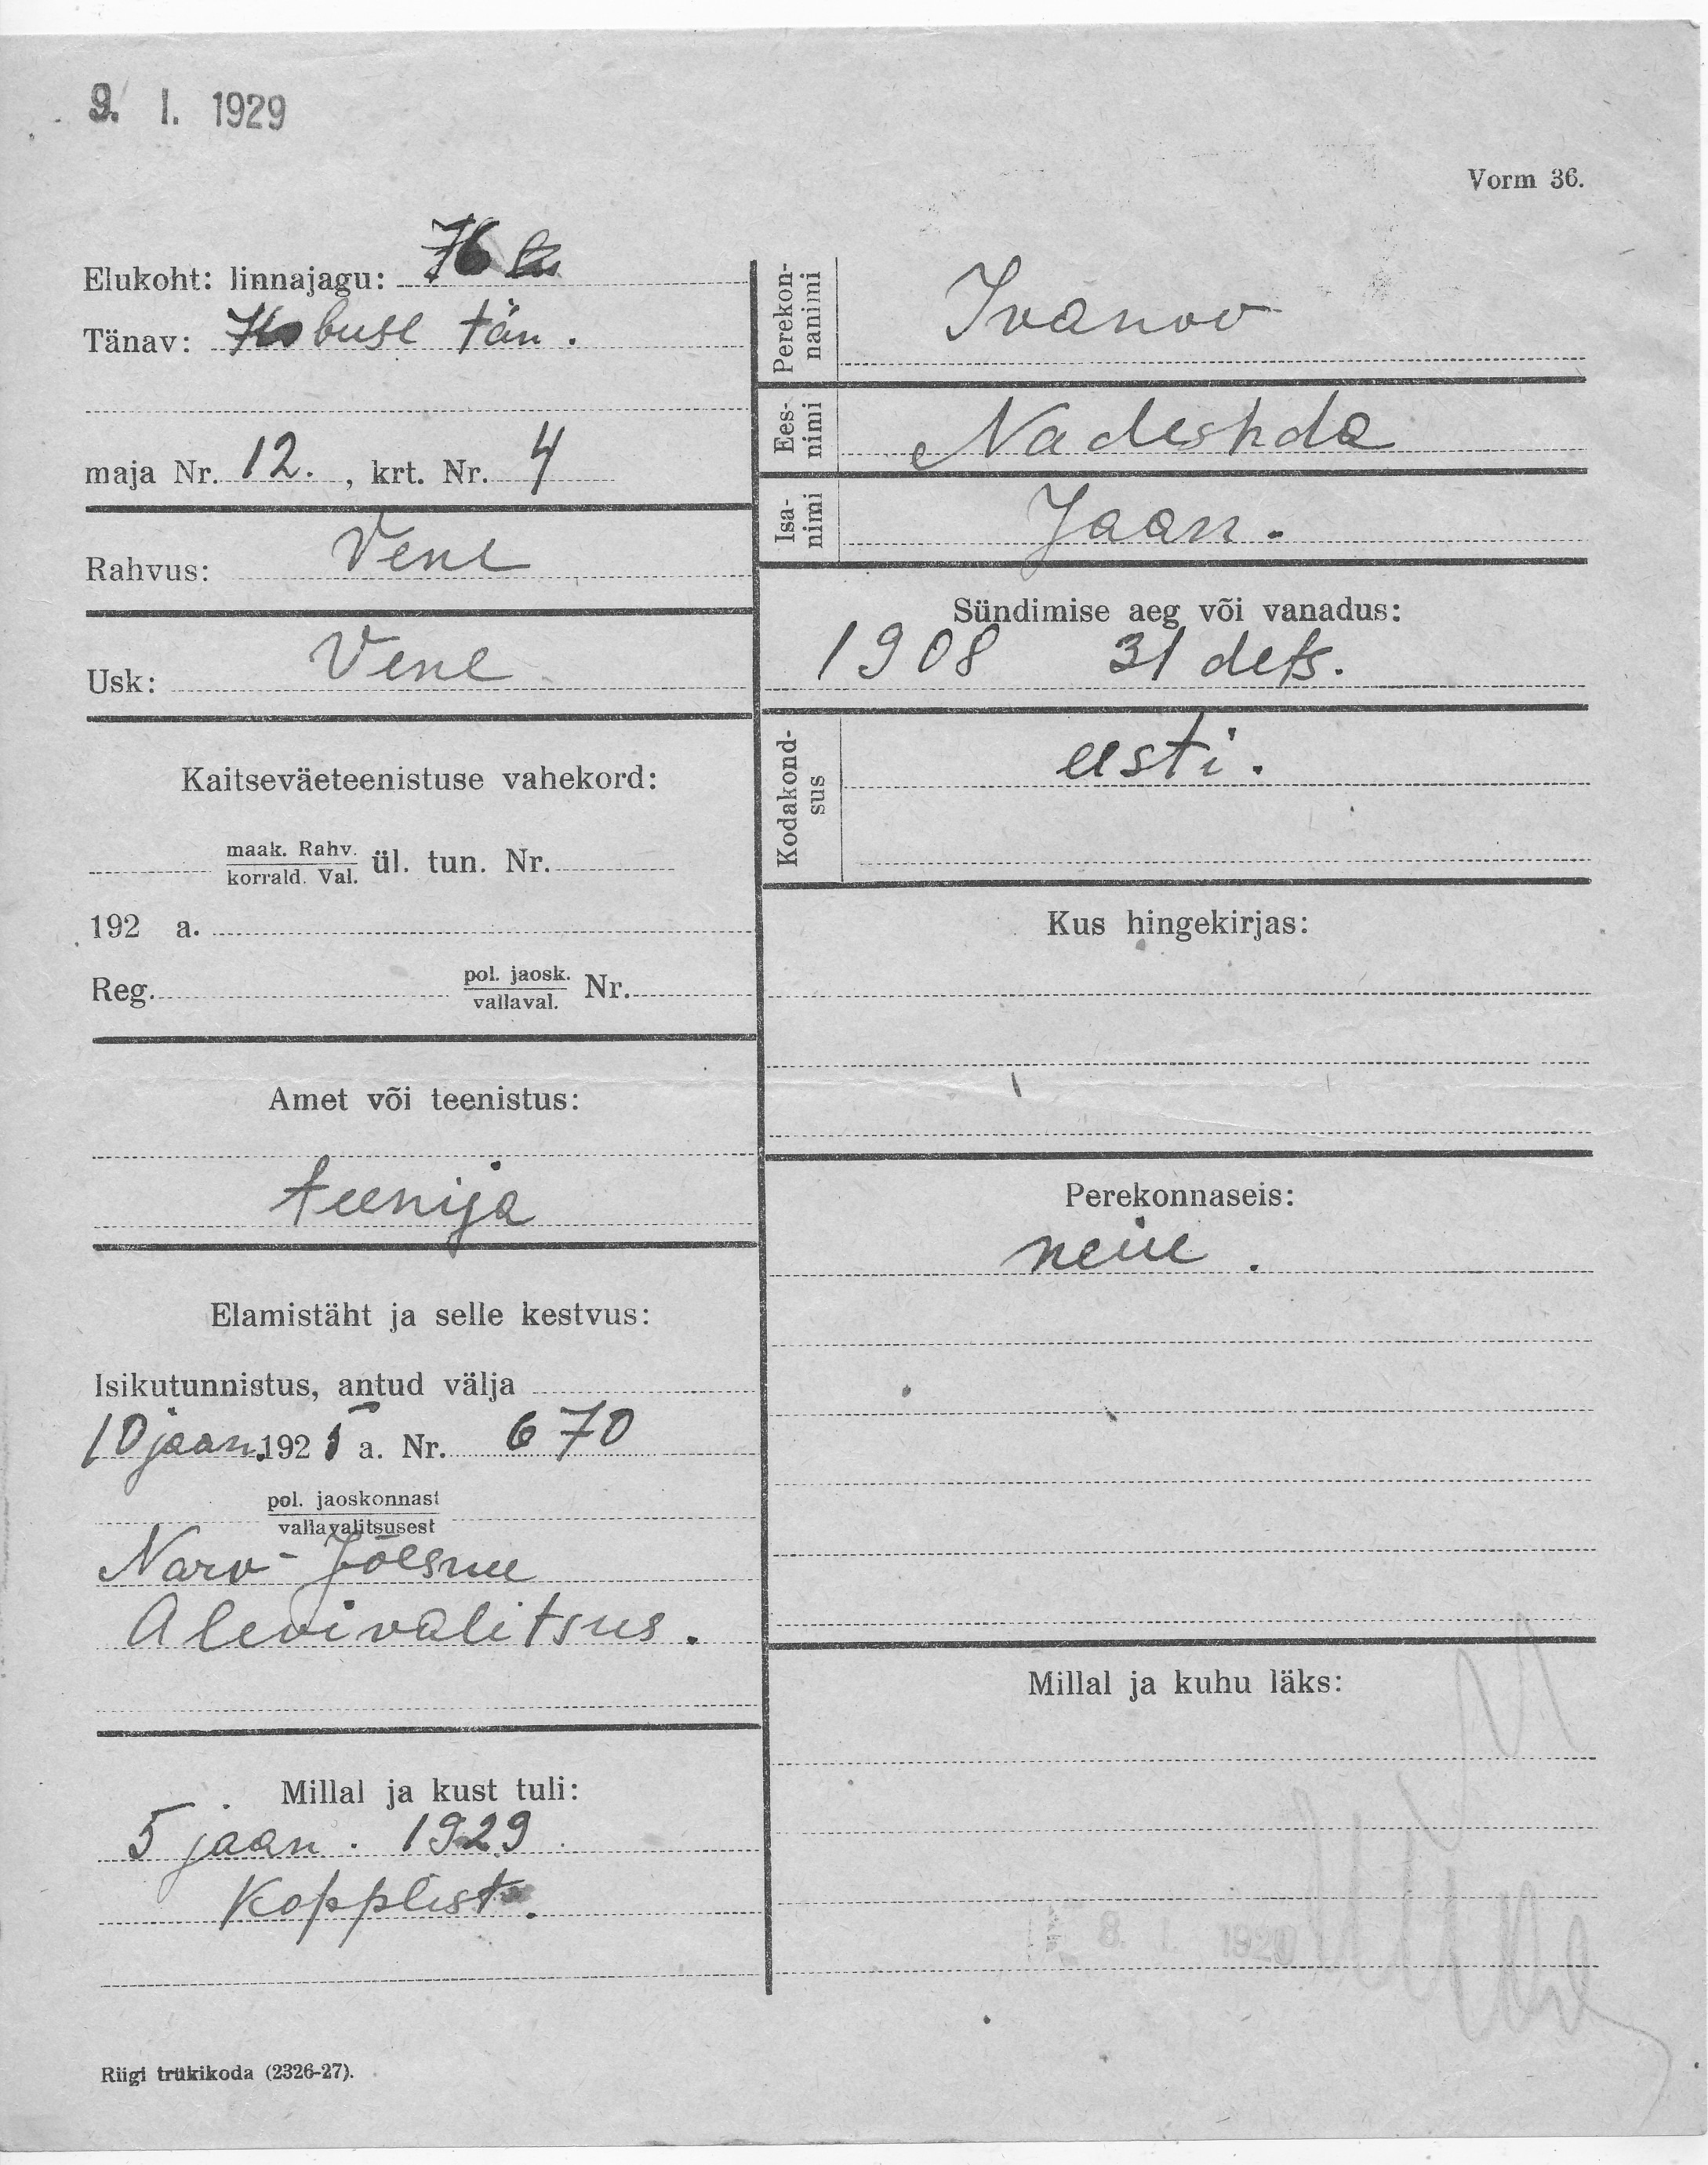 9. I. 1929
Vorm 36.
Elukoht: linnajagu:
Tänav: Hobuse tän.
maja Nr. 12. , krt. Nr. 4
Rahvus: Vene
Usk: Vene
Kaitseväeteenistuse vahekord:
maak. Rahv.
korrald. Val. ül. tun. Nr.
192 a.
Reg. pol. jaosk.
vallaval. Nr.
Amet või teenistus:
teenija
Elamistäht ja selle kestvus:
Isikutunnistus, antud välja
10 jaan. 1925 a. Nr. 670
pol. jaoskonnast
vallavalitsusest
Narv-Jõesuu
Alevivalitsus.
Millal ja kust tuli:
5 jaan. 1929
Kopplist.
Perekon-
nanimi
Ivanov
Ees-
nimi
Nadeshda
Isa-
nimi
Jaan.
Sündimise aeg või vanadus:
1908 31 dets.
Kodakond-
sus
eesti.
Kus hingekirjas:
Perekonnaseis:
neiu.
Millal ja kuhu läks:
8. I. 192
Riigi trükikoda (2326-27).